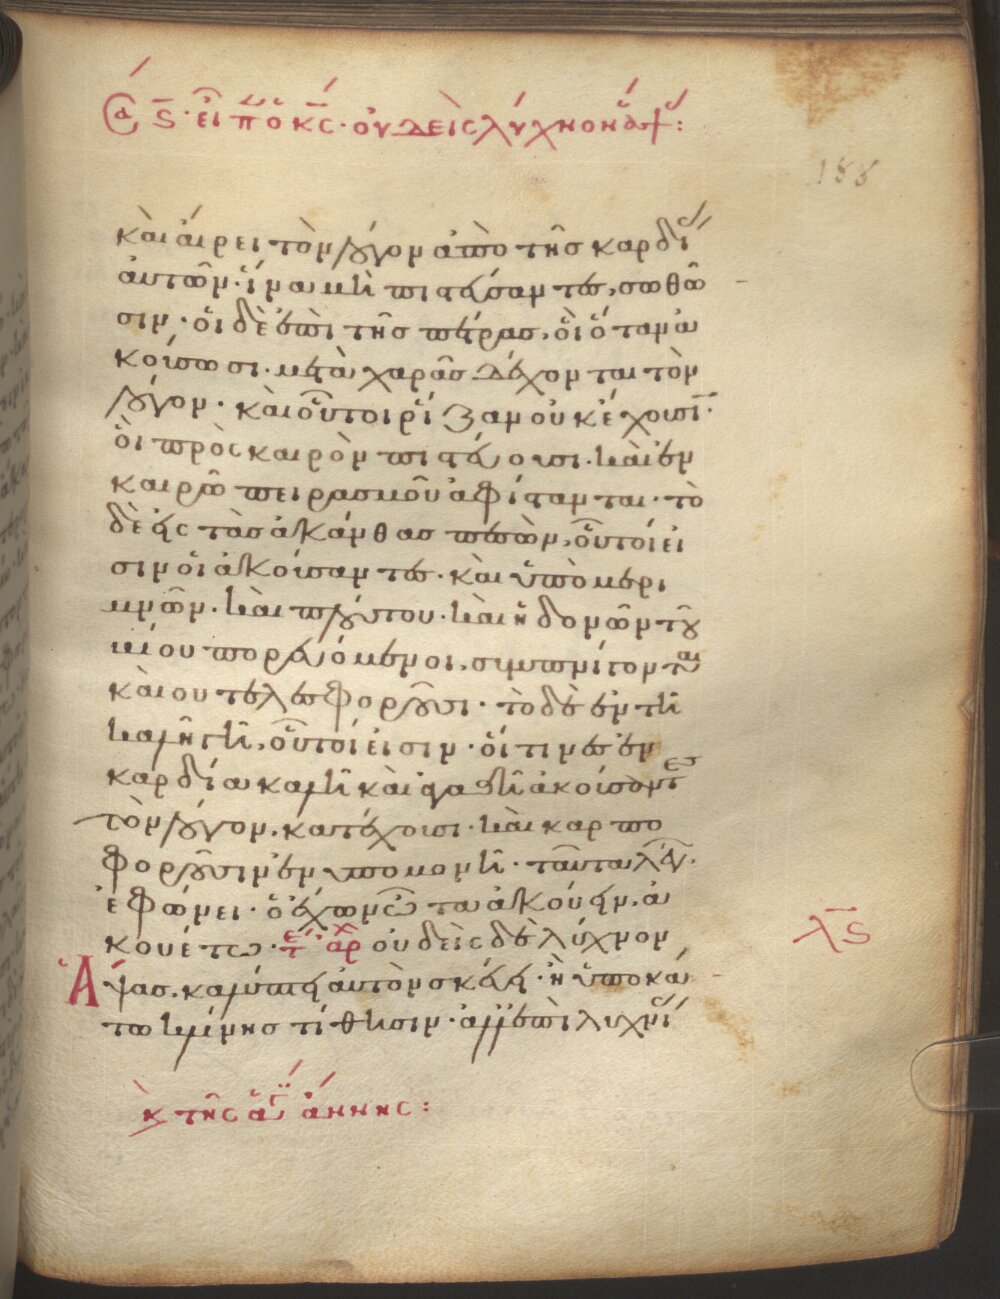 Σα ς· εἶπ ὁ κς· οὐδεὶς λύχνον ἅψ:
188
καὶ αἴρει τὸν λόγον ἀπὸ τῆς καρδί
ἀυτῶν· ἵνα μὴ πιστεύσαντες, σωθῶ
σιν· ὅι δὲ ἐπὶ τῆς πέτρας, ὅι ὅταν ἀ
κούσωσι· μετὰ χαρᾶς δέχονται τὸν
λόγον· καὶ οὗτοι ῥίζαν οὐκ έχουσι·
ὅι πρὸς καιρὸν πιστεύουσι· καὶ ἐν
καιρῶ πειρασμοῦ ἀφίστανται· τὸ
δὲ εἰς τὰς ἀκάνθας πεσὸν, οὗτοί εἰ
σιν ὅι ἀκούσαντες· καὶ ὑπὸ μερι
μνῶν· καὶ πλούτου· καὶ ἡδονῶν τοῦ
βίου πορευόμενοι, συμπνίγονται
καὶ ου τελεσφοροῦσι· τὸ δὲ ἐν τῆ
καλῆ γῆ, οὗτοί εἰσιν· ὅιτινες ἐν
καρδία καλῆ καὶ ἀγαθῆ ἀκούσαντες
τὸν λόγον, κατέχουσι· καὶ καρπο
φοροῦσιν ἐν υπομονῆ· ταῦτα λέγων·
ἐφώνει· ὁ ἔχων ὦτα ἀκούειν, ἀ
κουέτω· τε ἀρχ οὐδεὶς δὲ λύχνον
Ἅψας, καλύπτει ἀυτὸν σκεύει· ἢ ὑποκά
τω κλίνης τίθησιν· ἀλλ ἐπὶ λυχνί
λς
κ τῆς ἁγί άννης: